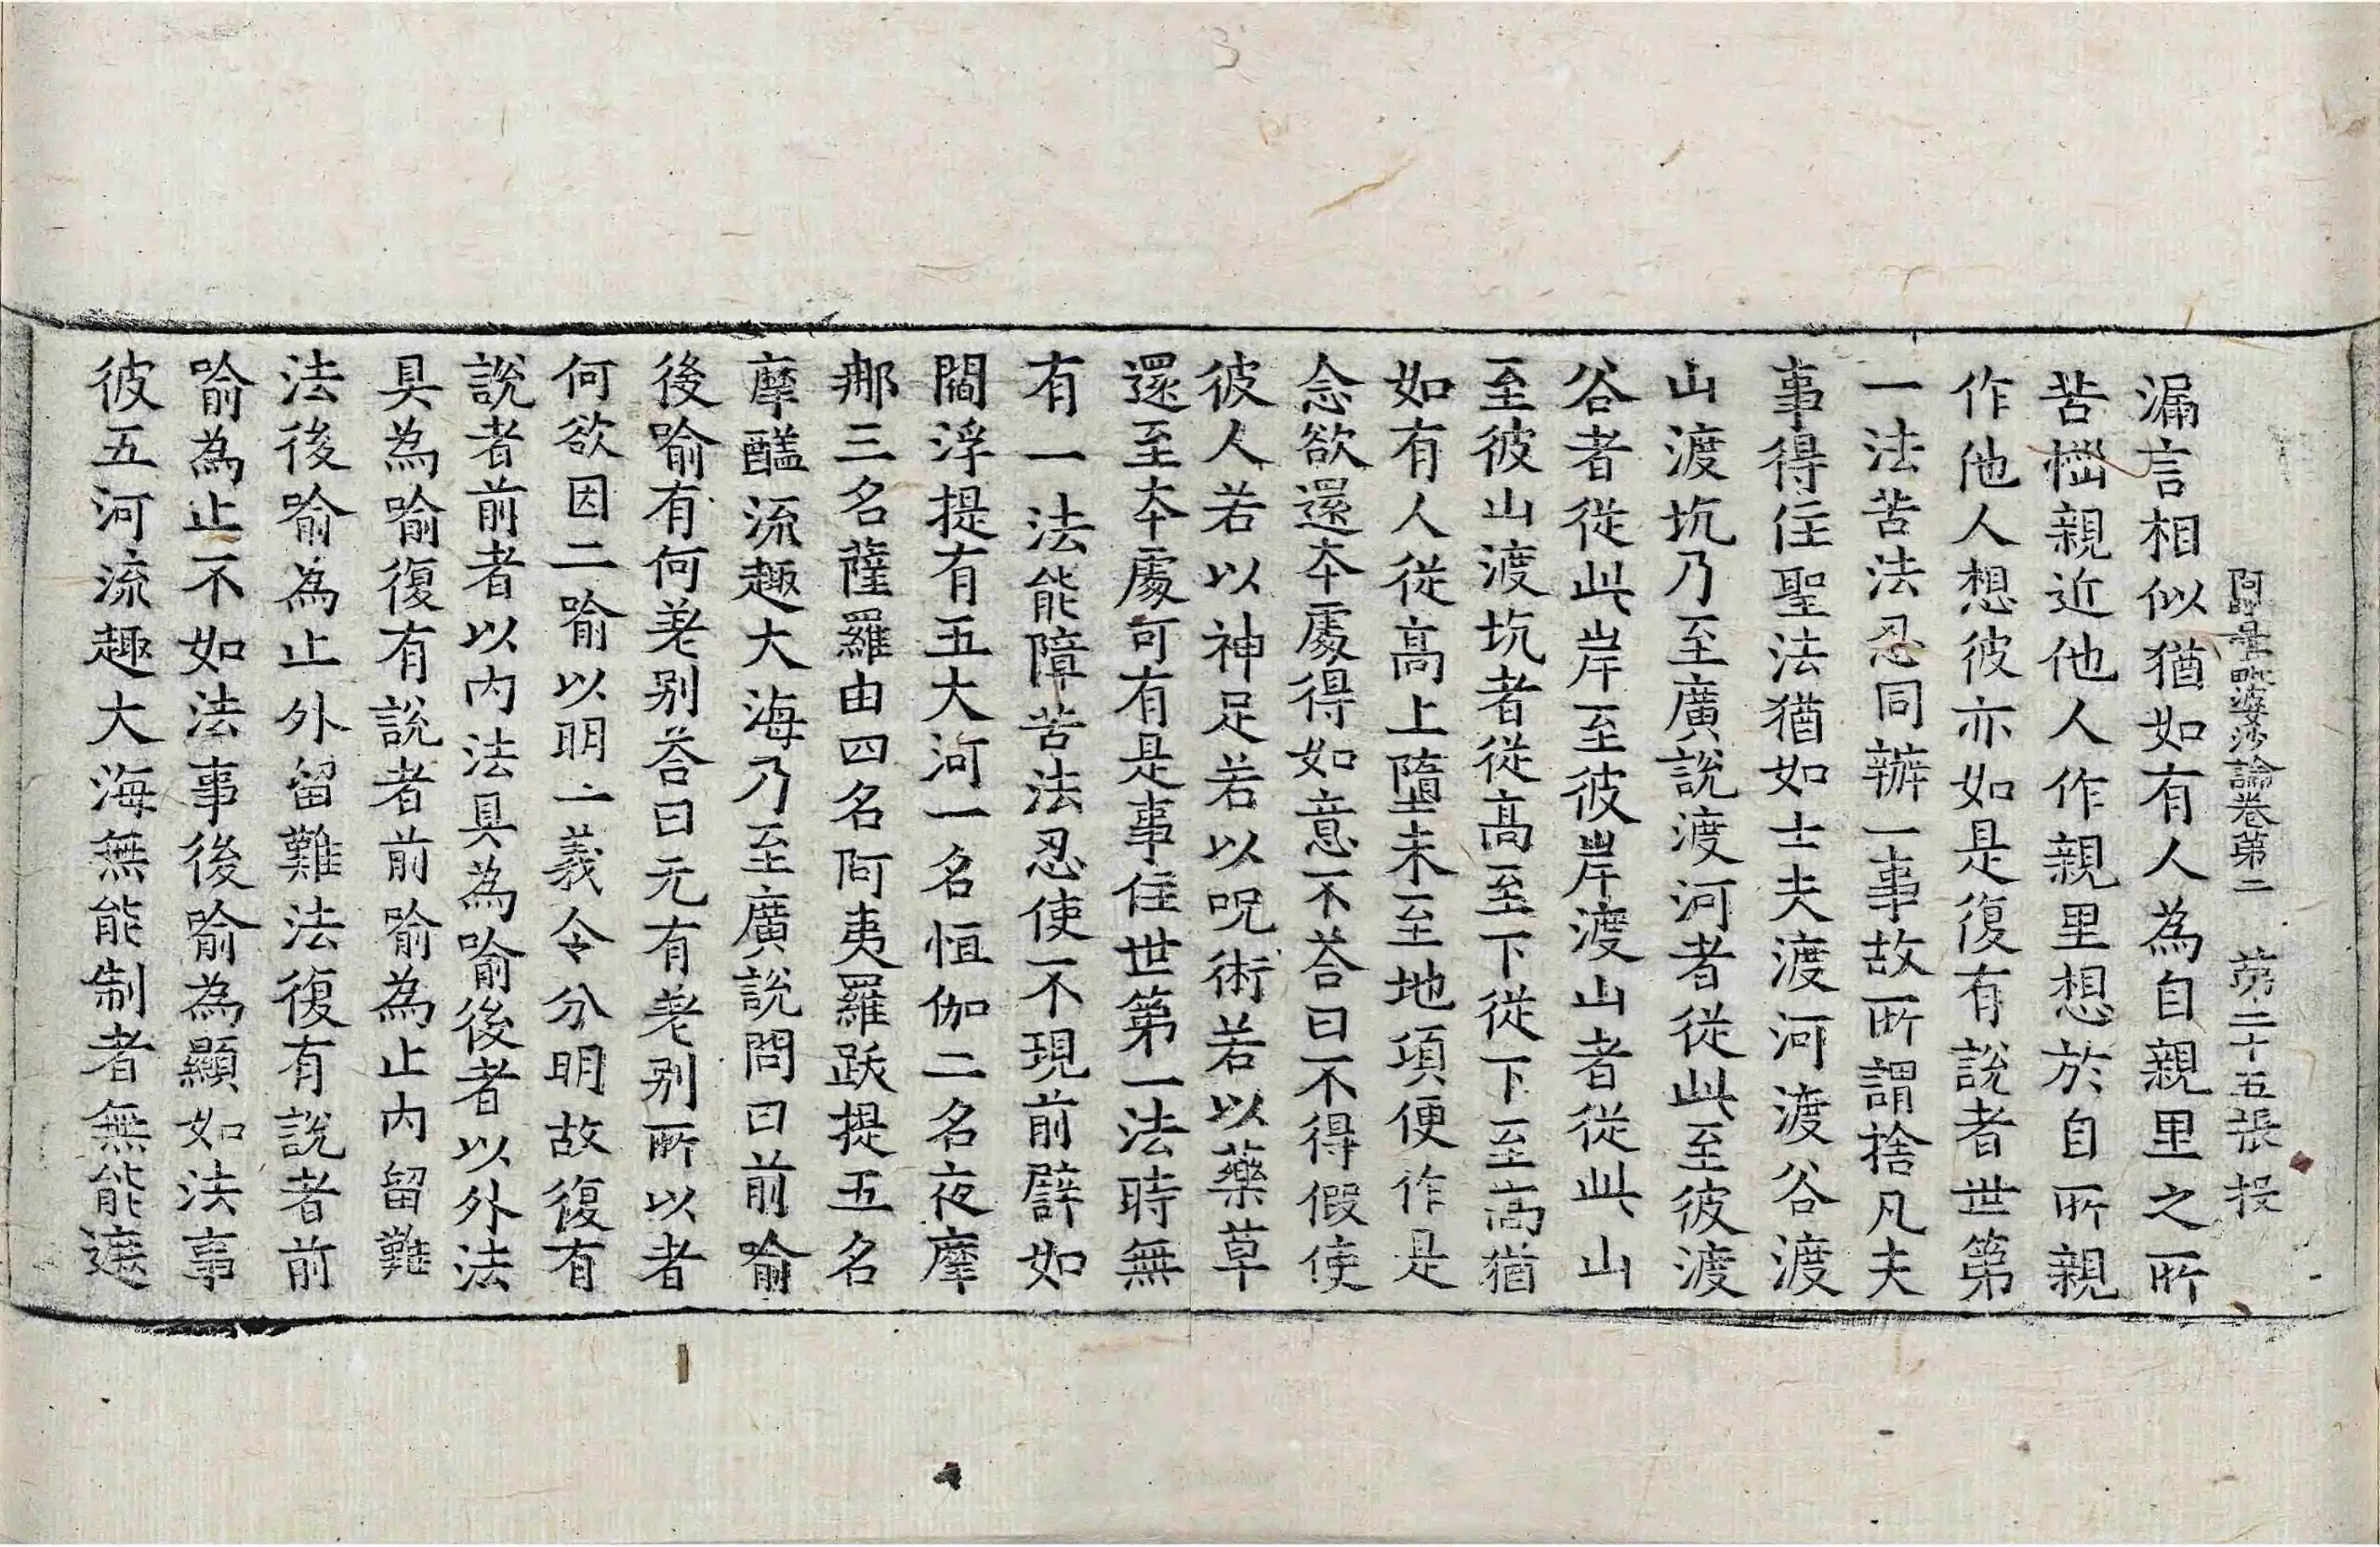 阿毗曇毗婆沙論卷第二 第二十五張 投
漏言相似猶如有人為自親里之所
苦惱親近他人作親里想於自所親
作他人想彼亦如是復有說者世第
一法苦法忍同辦一事故所謂捨凡夫
事得住聖法猶如士夫渡河渡谷渡
山渡坑乃至廣說渡河者從此至彼渡
谷者從此岸至彼岸渡山者從此山
至彼山渡坑者從高至下從下至高猶
如有人從高上墮未至地頃便作是
念欲還本處得如意不荅曰不得假使
彼人若以神足若以呪術若以藥草
還至本處可有是事住世第一法時無
有一法能障苦法忍使不現前譬如
閻浮提有五大河一名恒伽二名夜摩
那三名薩羅由四名阿夷羅跋提五名
摩醯流趣大海乃至廣說問曰前喻
後喻有何差別荅曰无有差別所以者
何欲因二喻以明一義令分明故復有
說者前者以內法具為喻後者以外法
具為喻復有說者前喻為止內留難
法後喻為止外留難法復有說者前
喻為止不如法事後喻為顯如法事
彼五河流趣大海無能制者無能遮